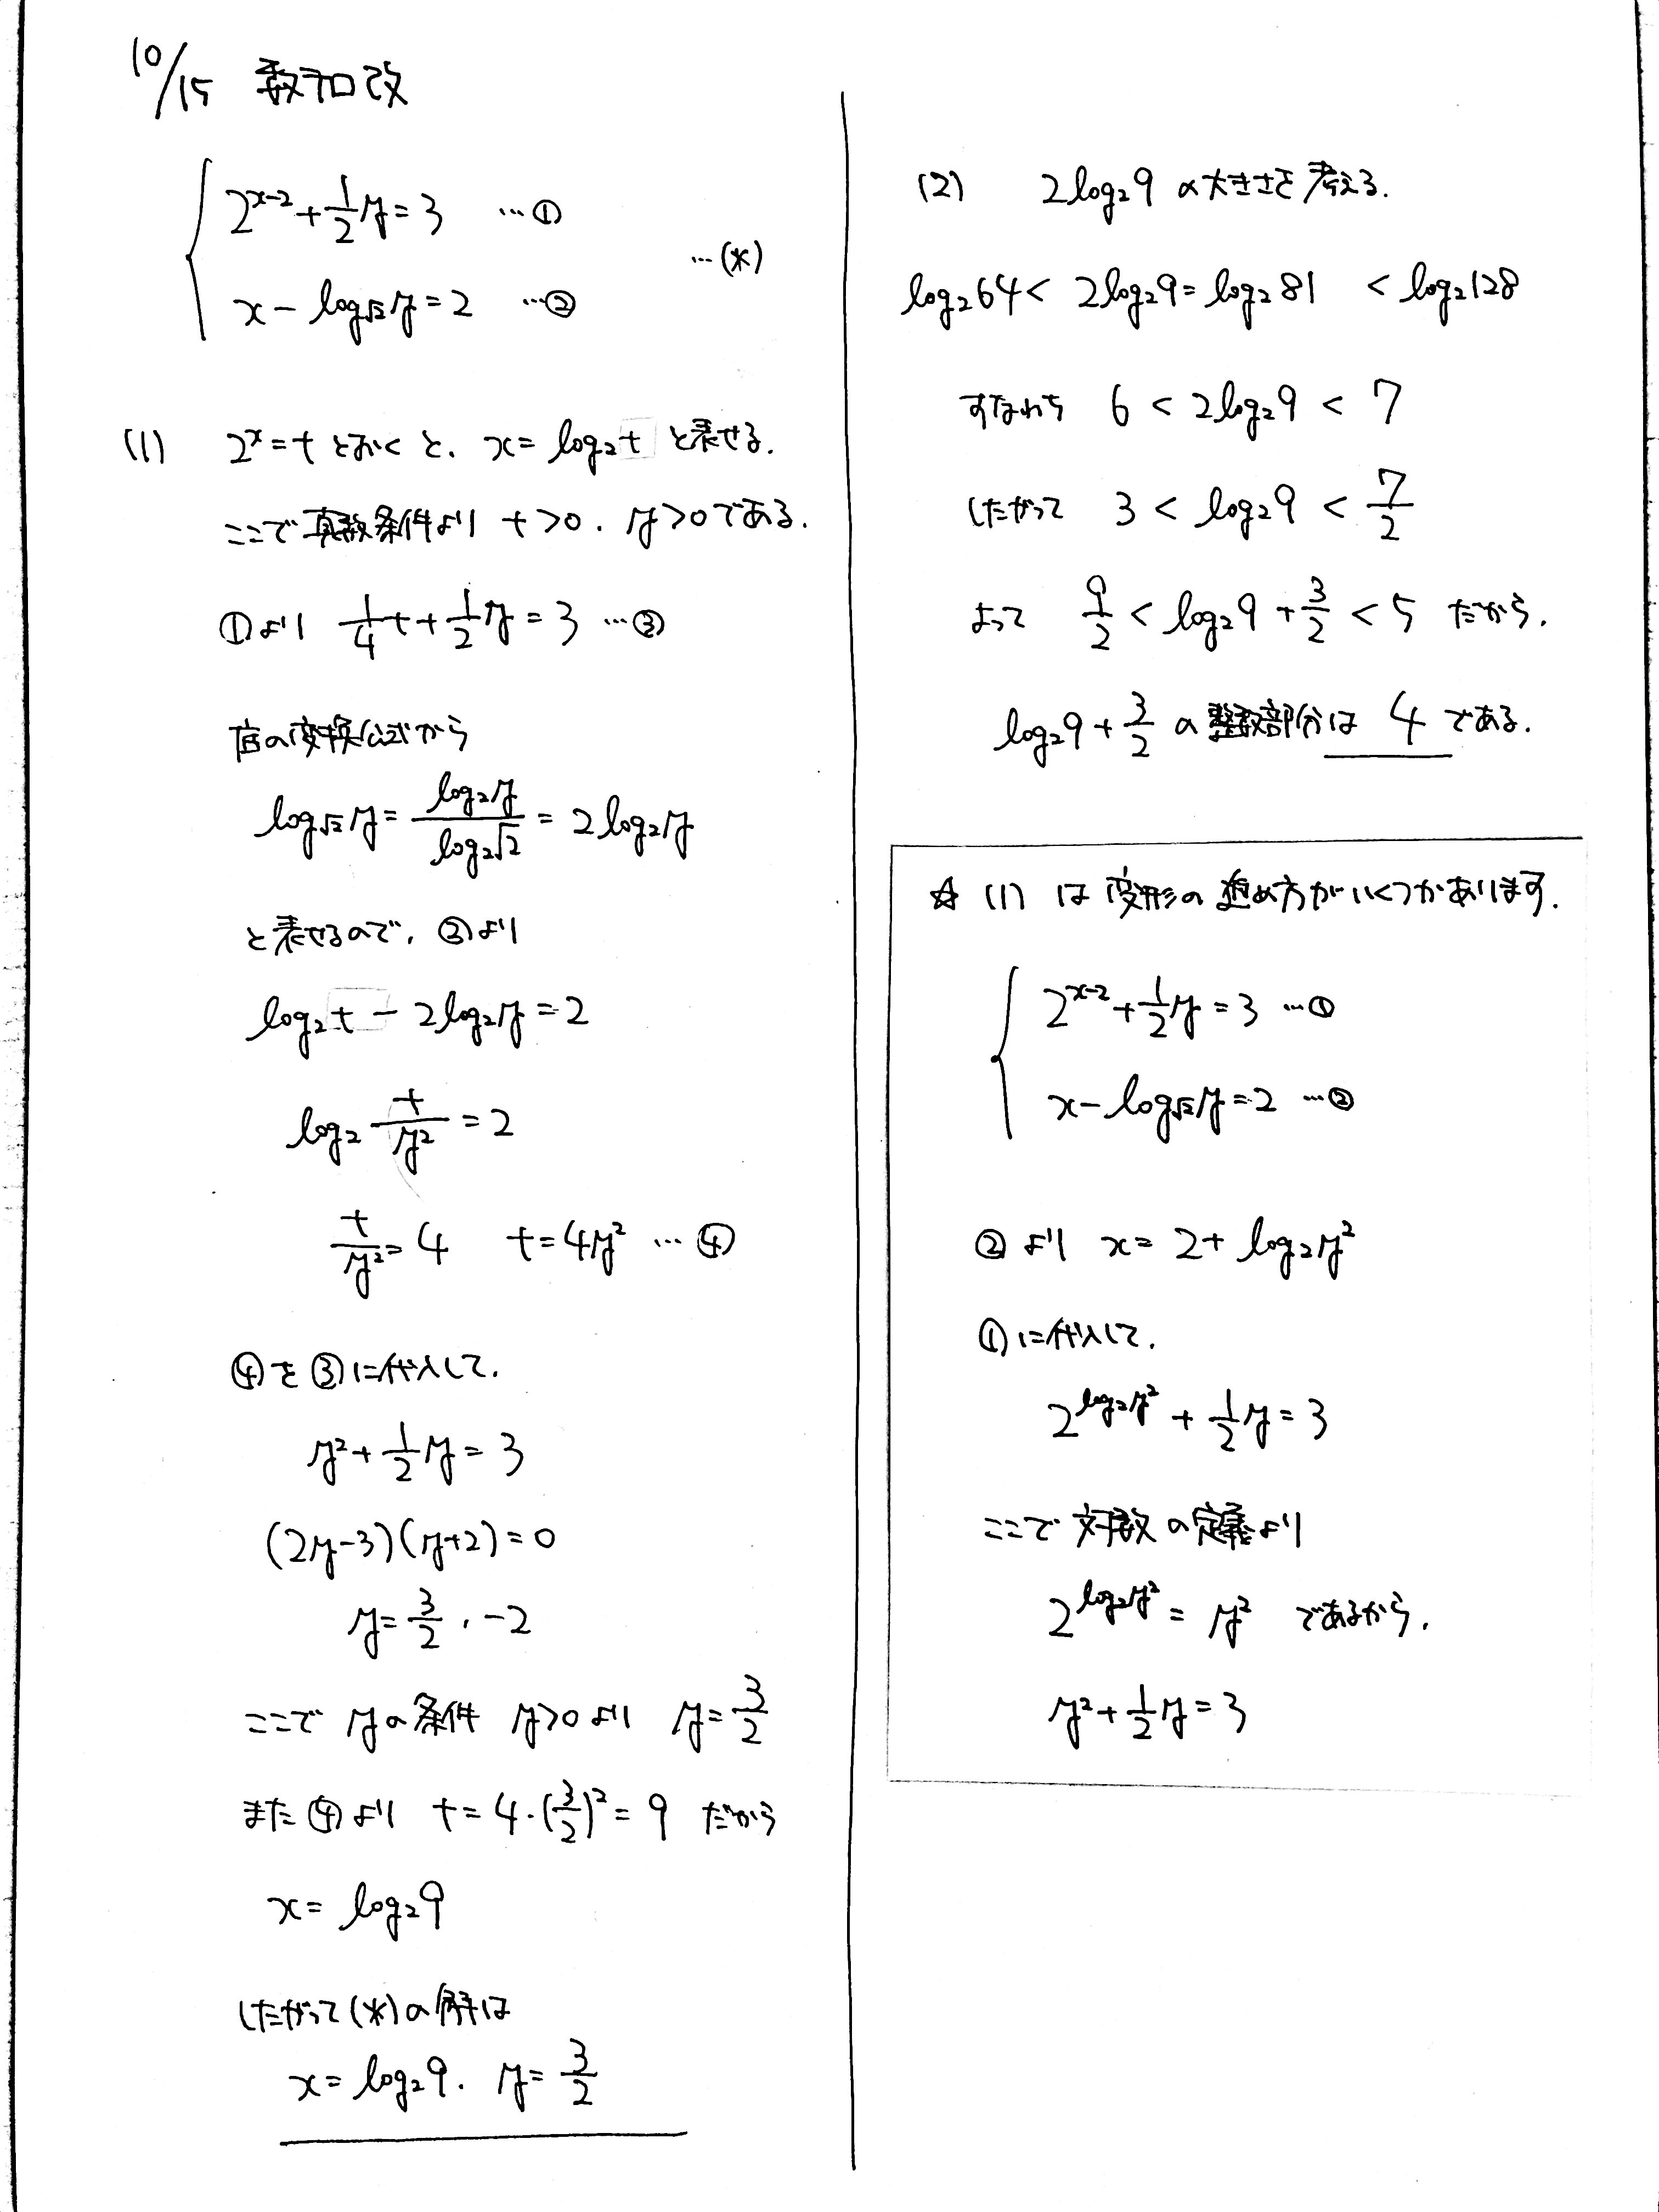 10/15 数テロ改
2^{x-2} + 1/2 y = 3 …①
…(*)
x - log_{√2} y = 2 …②
(1) 2^x = t とおくと、x = log_2 t と表せる.
ここで真数条件より t > 0. y > 0 である.
①より 1/4 t + 1/2 y = 3 …③
底の変換公式から
log_{√2} y = log_2 y / log_2 √2 = 2 log_2 y
と表せるので, ②より
log_2 t - 2 log_2 y = 2
log_2 t/y² = 2
t/y² = 4 t = 4y² …④
④を③に代入して.
y² + 1/2 y = 3
(2y-3)(y+2) = 0
y = 3/2 , -2
ここで yの条件 y>0 より y = 3/2
また④より t = 4・(3/2)² = 9 だから
x = log_2 9
したがって(*)の解は
x = log_2 9. y = 3/2
(2) 2 log_2 9 の大きさを考える.
log_2 64 < 2 log_2 9 = log_2 81 < log_2 128
すなわち 6 < 2 log_2 9 < 7
したがって 3 < log_2 9 < 7/2
よって 9/2 < log_2 9 + 3/2 < 5 だから.
log_2 9 + 3/2 の整数部分は 4 である.
☆ (1) は変形の進め方がいくつかあります.
2^{x-2} + 1/2 y = 3 …①
x - log_{√2} y = 2 …②
②より x = 2 + log_2 y²
①に代入して.
2^{log_2 y²} + 1/2 y = 3
ここで対数の定義より
2^{log_2 y²} = y² であるから.
y² + 1/2 y = 3